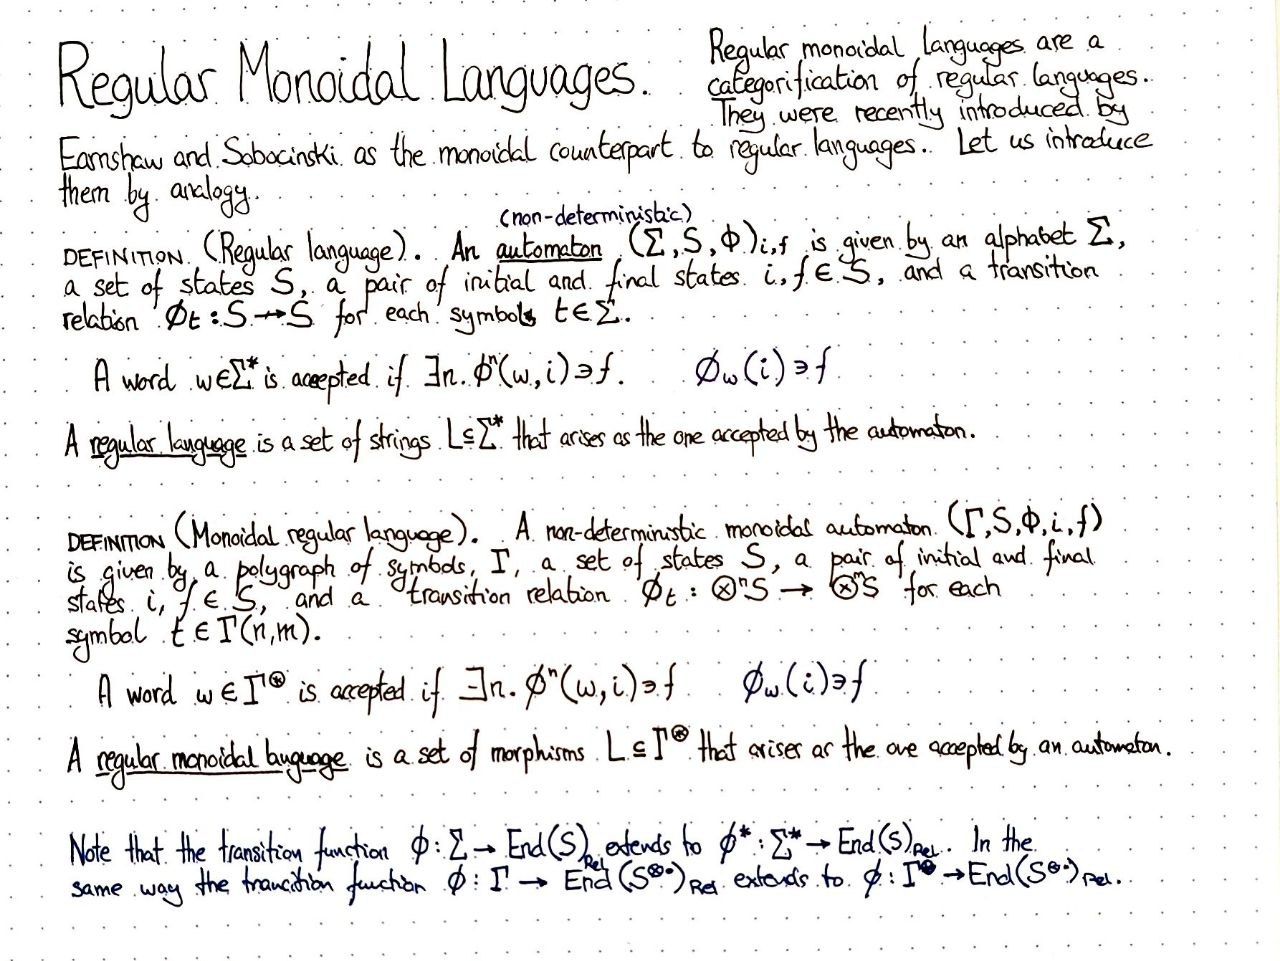 Regular Monoidal Languages.
Regular monoidal languages are a
categorification of regular languages.
They were recently introduced by
Earnshaw and Sobocinski as the monoidal counterpart to regular languages.. Let us introduce
them by analogy.
(non-deterministic)
DEFINITION. (Regular language). An automaton (Σ, S, ϕ)i,f is given by an alphabet Σ,
a set of states S, a pair of initial and final states i, f ∈ S, and a transition
relation ϕt : S → S for each symbol t ∈ Σ.
A word w∈Σ* is accepted if ∃n. ϕⁿ(w,i) ∋ f. ϕw(i) ∋ f
A regular language is a set of strings L ⊆ Σ* that arises as the one accepted by the automaton.
DEFINITION (Monoidal regular language). A non-deterministic monoidal automaton (Γ, S, ϕ, i, f)
is given by a polygraph of symbols, Γ, a set of states S, a pair of initial and final
states i, f ∈ S, and a transition relation ϕt : ⊗ⁿS → ⊗ᵐS for each
symbol t ∈ Γ(n,m).
A word w ∈ Γ^⊛ is accepted if ∃n. ϕⁿ(w,i) ∋ f ϕw(i) ∋ f
A regular monoidal language is a set of morphisms L ⊆ Γ^⊛ that arises as the one accepted by an automaton.
Note that the transition function ϕ : Σ → End(S)Rel extends to ϕ* : Σ* → End(S)Rel. In the
same way the transition function ϕ : Γ → End(S^⊗•)Rel extends to ϕ : Γ^⊛ → End(S^⊗•)Rel.